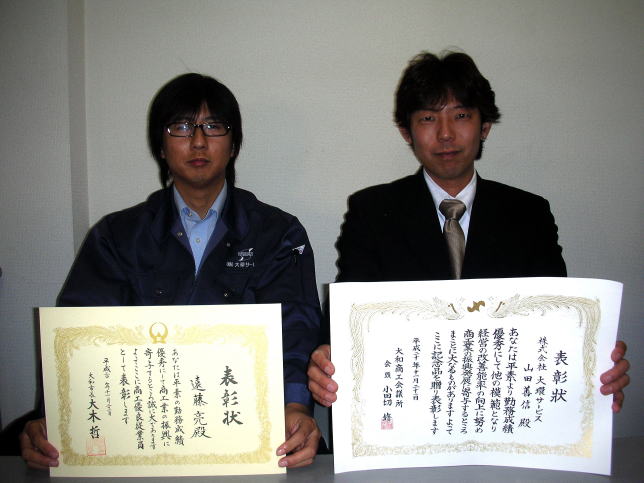 (株)大環サービス
表彰状
遠藤 亮殿
あなたは平素の勤務成績
優秀にして商工業の振興に
寄与するところ誠に大であります
よってここに商工優良従業員
として表彰します
平成 年十一月 日
大和市長 大木 哲
表彰状
株式会社 大環サービス
山田善信 殿
あなたは平素より勤務成績
優秀にして他の模範となり
経営の改善能率の向上に努め
商工業の振興発展に寄与するところ
まことに大なるものがありますよって
ここに記念品を贈り表彰します
平成二十年十一月二十日
大和商工会議所
会頭 小田切